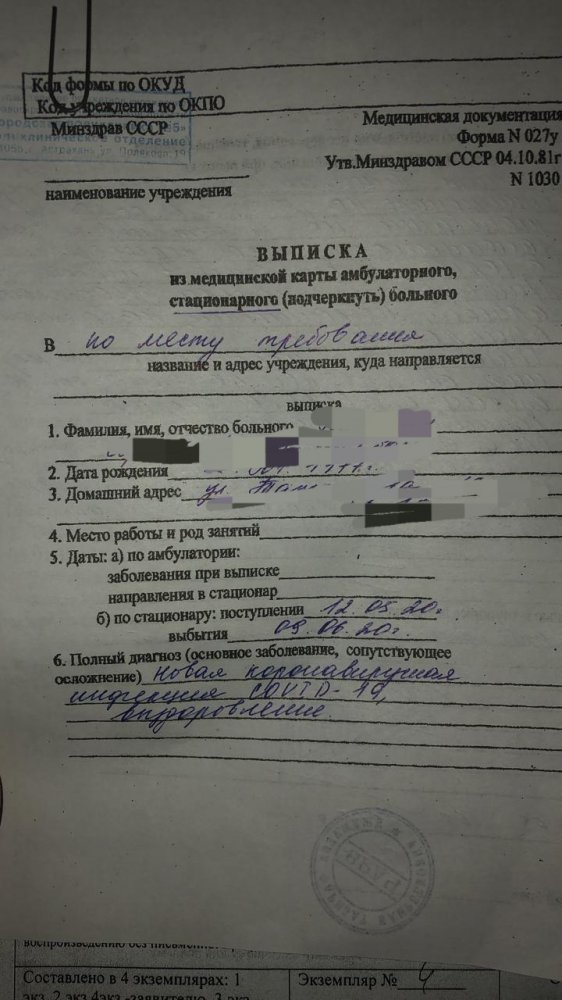 Код формы по ОКУД
Код учреждения по ОКПО
Минздрав СССР
клиническое отделение
Астрахань ул
Медицинская документация
Форма N 027у
Утв.Минздравом СССР 04.10.81г
N 1030
наименование учреждения
ВЫПИСКА
из медицинской карты амбулаторного,
стационарного (подчеркнуть) больного
В по месту требования
название и адрес учреждения, куда направляется
выписка
1. Фамилия, имя, отчество больного
2. Дата рождения
3. Домашний адрес ул.
4. Место работы и род занятий
5. Даты: а) по амбулатории:
заболевания при выписке
направления в стационар
б) по стационару: поступлении 12.05.20г.
выбытия 09.06.20г.
6. Полный диагноз (основное заболевание, сопутствующее
осложнение) Новая коронавирусная
инфекция COVID-19,
выздоровление.
воспроизведению без
Составлено в 4 экземплярах: 1
Экземпляр № 4